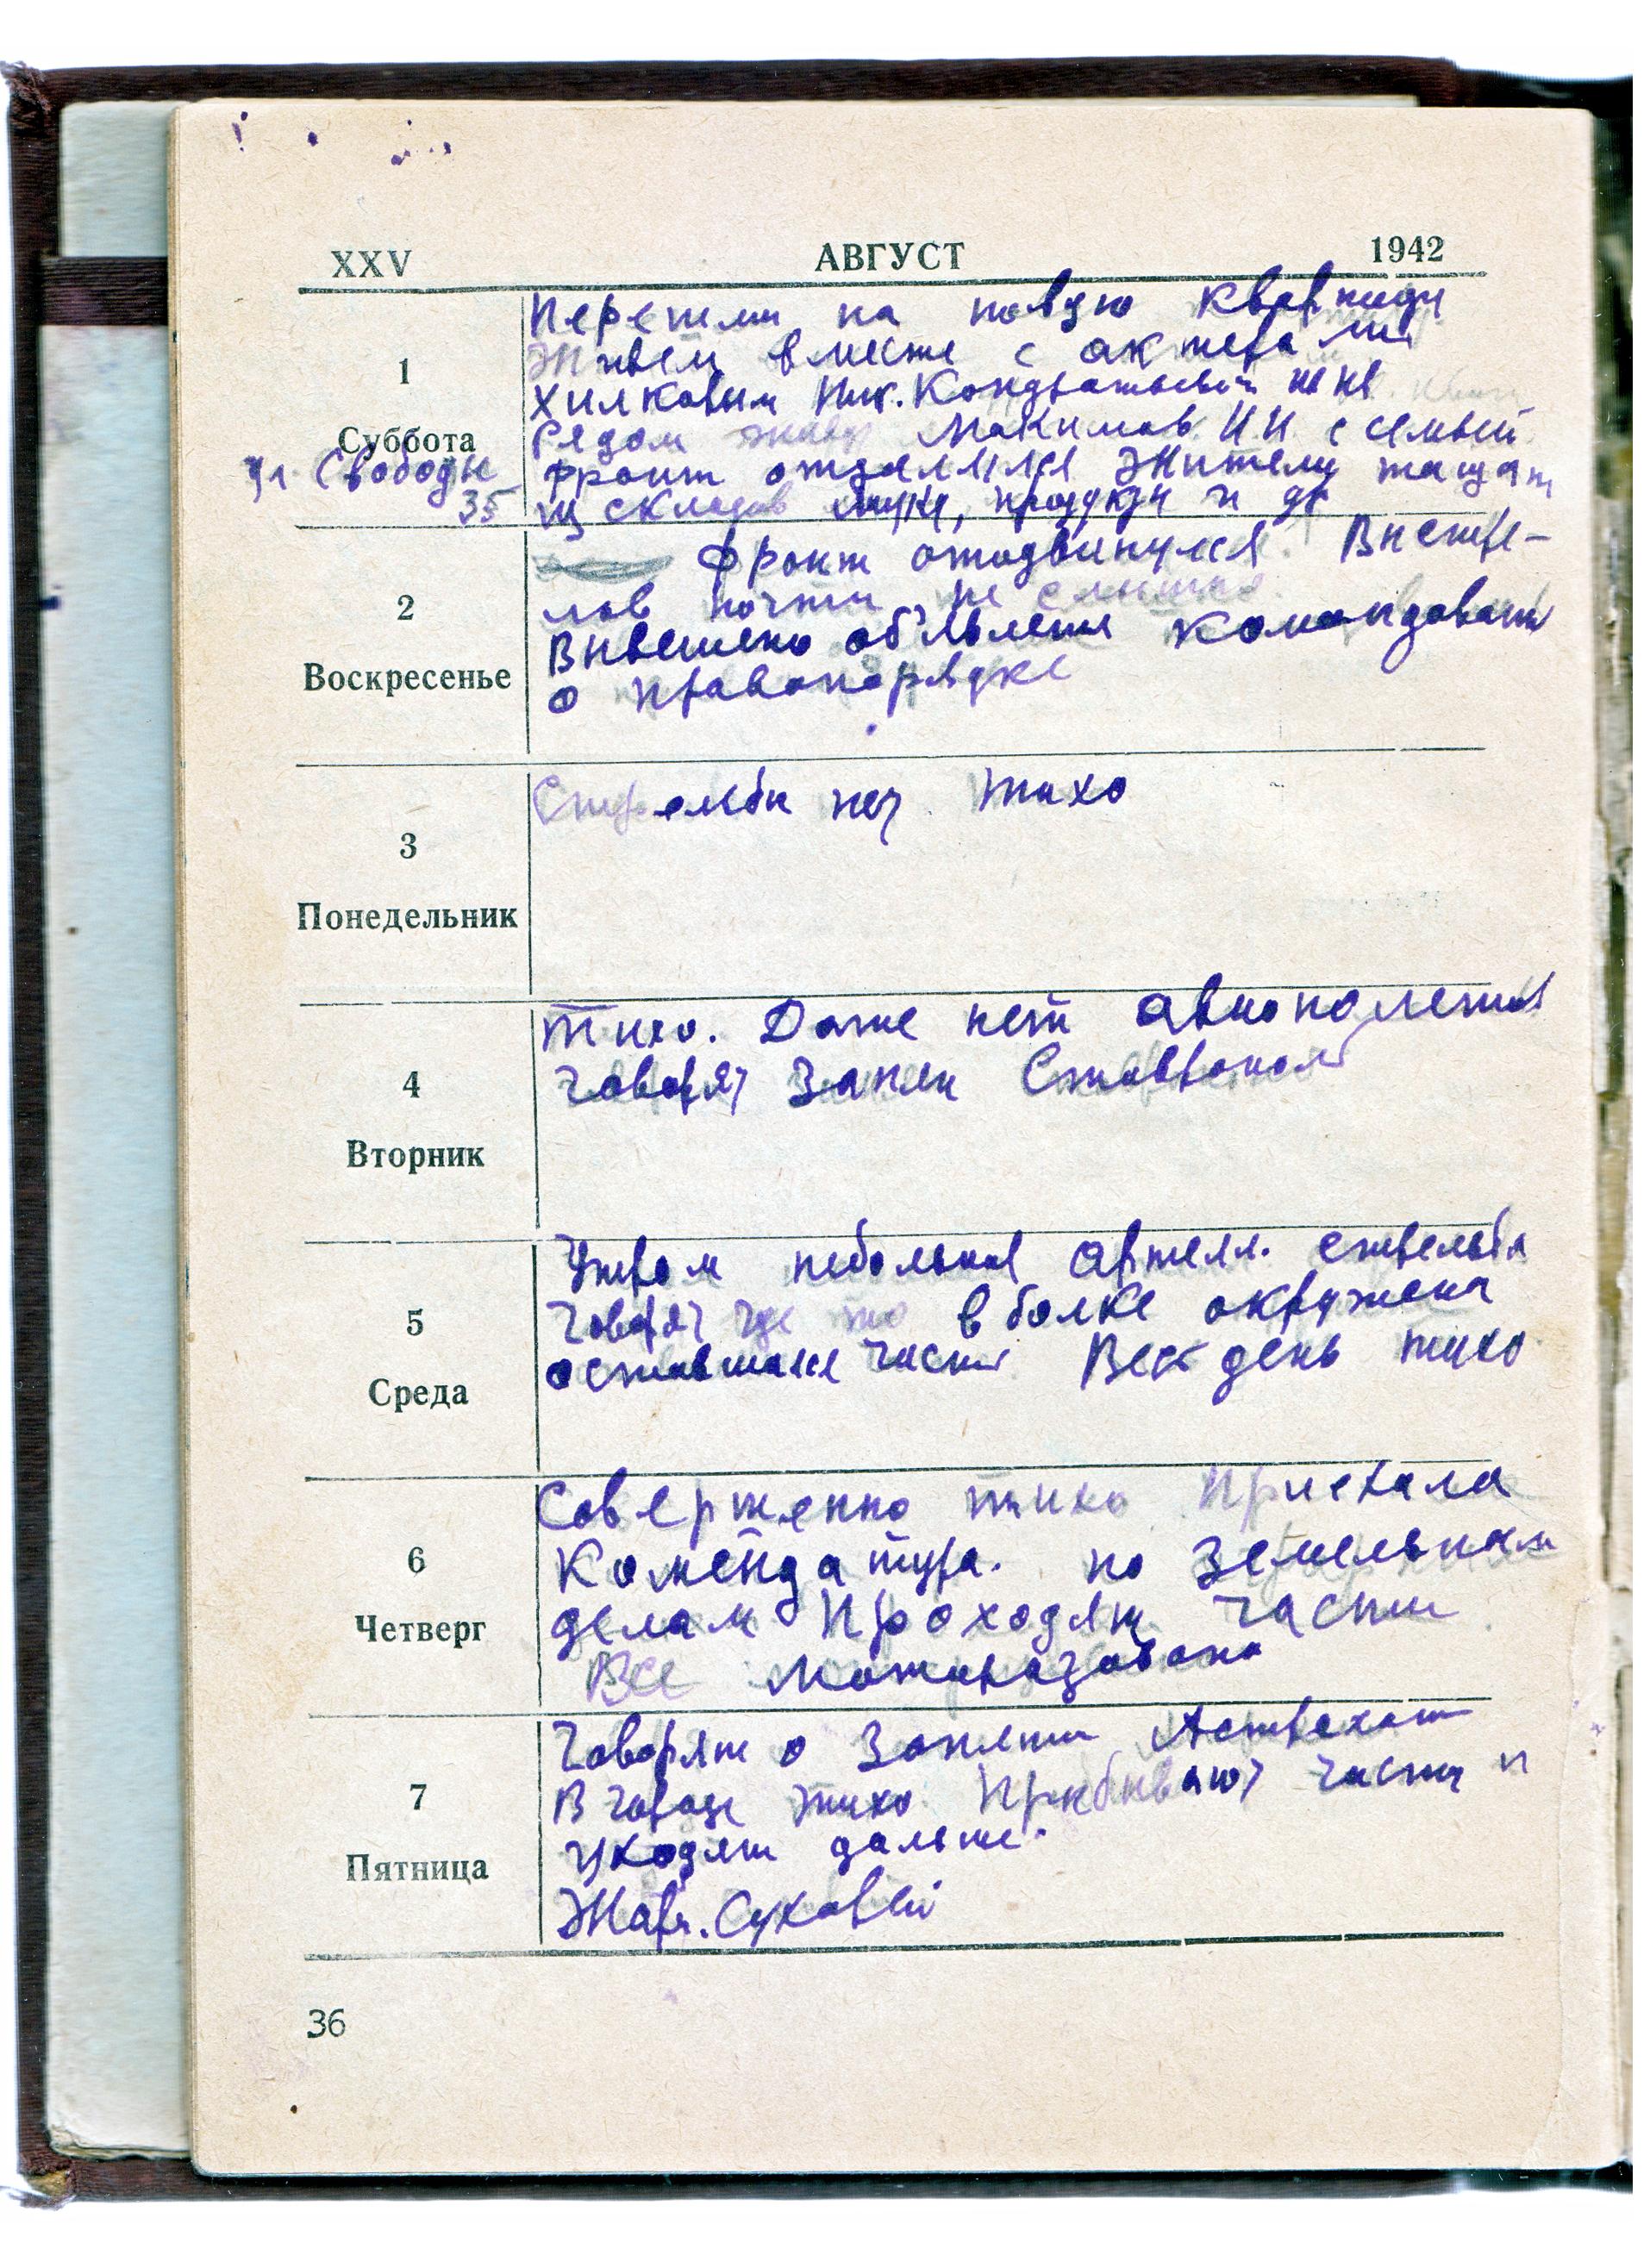 XXV АВГУСТ 1942
1
Суббота
ул Свободы
35
Перешли на новую квартиру
Живем вместе с актерами
Хилковым Ник. Кондратьевич
Рядом живет Макимов И И с семьей
фронт отдалился Жители тащат
из складов муку, продукты и др
2
Воскресенье
фронт отодвинулся. Выстре-
лов почти не слышно.
Вывешено об'явление командован
о правопорядке
3
Понедельник
Стрельбы нет. Тихо
4
Вторник
Тихо. Даже нет авиополетов
Говорят Занят Ставрополь
5
Среда
Утром небольшая артелл. стрельба
Говорят где то в балке окружена
оставшаяся часть Весь день тихо
6
Четверг
Совершенно тихо Приехала
Комендатура. по Земельным
делам Проходят части
Все моторизовано
7
Пятница
Говорят о Занятии Астрахани
В городе тихо Прибывают части и
уходят дальше.
Жара. Суховей
36